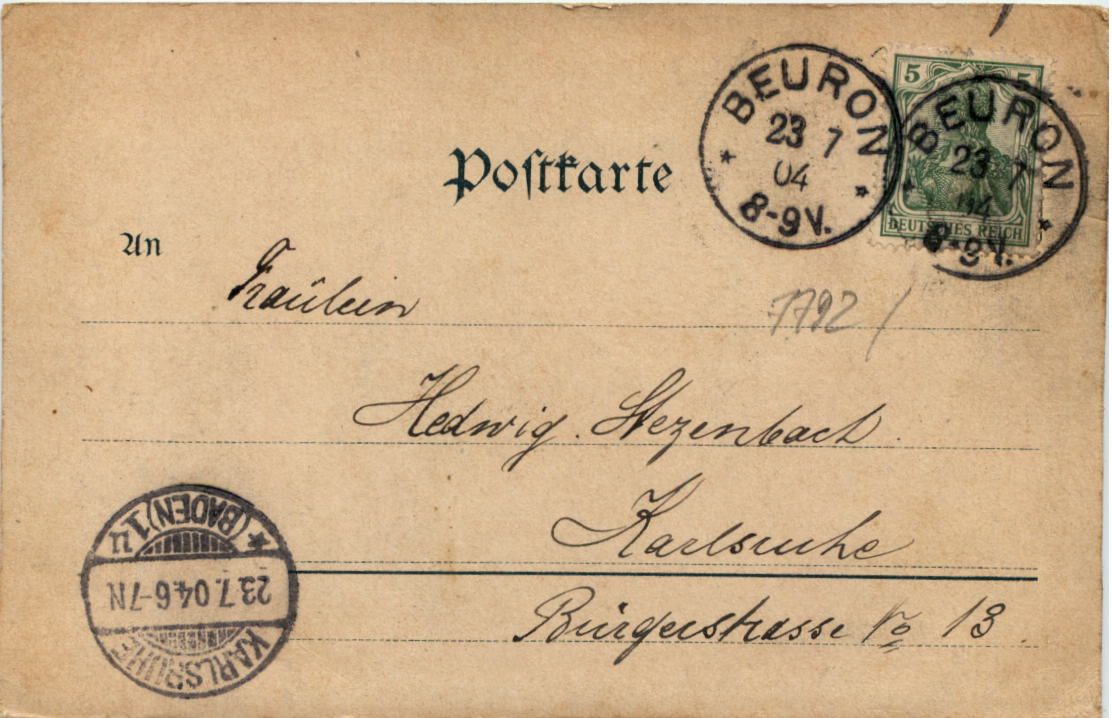 BEURON
23 7
04
8-9V.
5 5
BEURON
23 7
04
8-9V.
DEUTSCHES REICH
Postkarte
An
Fräulein
7792 /
Hedwig Stezenbach.
Karlsruhe
Bürgerstrasse No 13.
KARLSRUHE
23.7.04.6-7N
* (BADEN) 1u